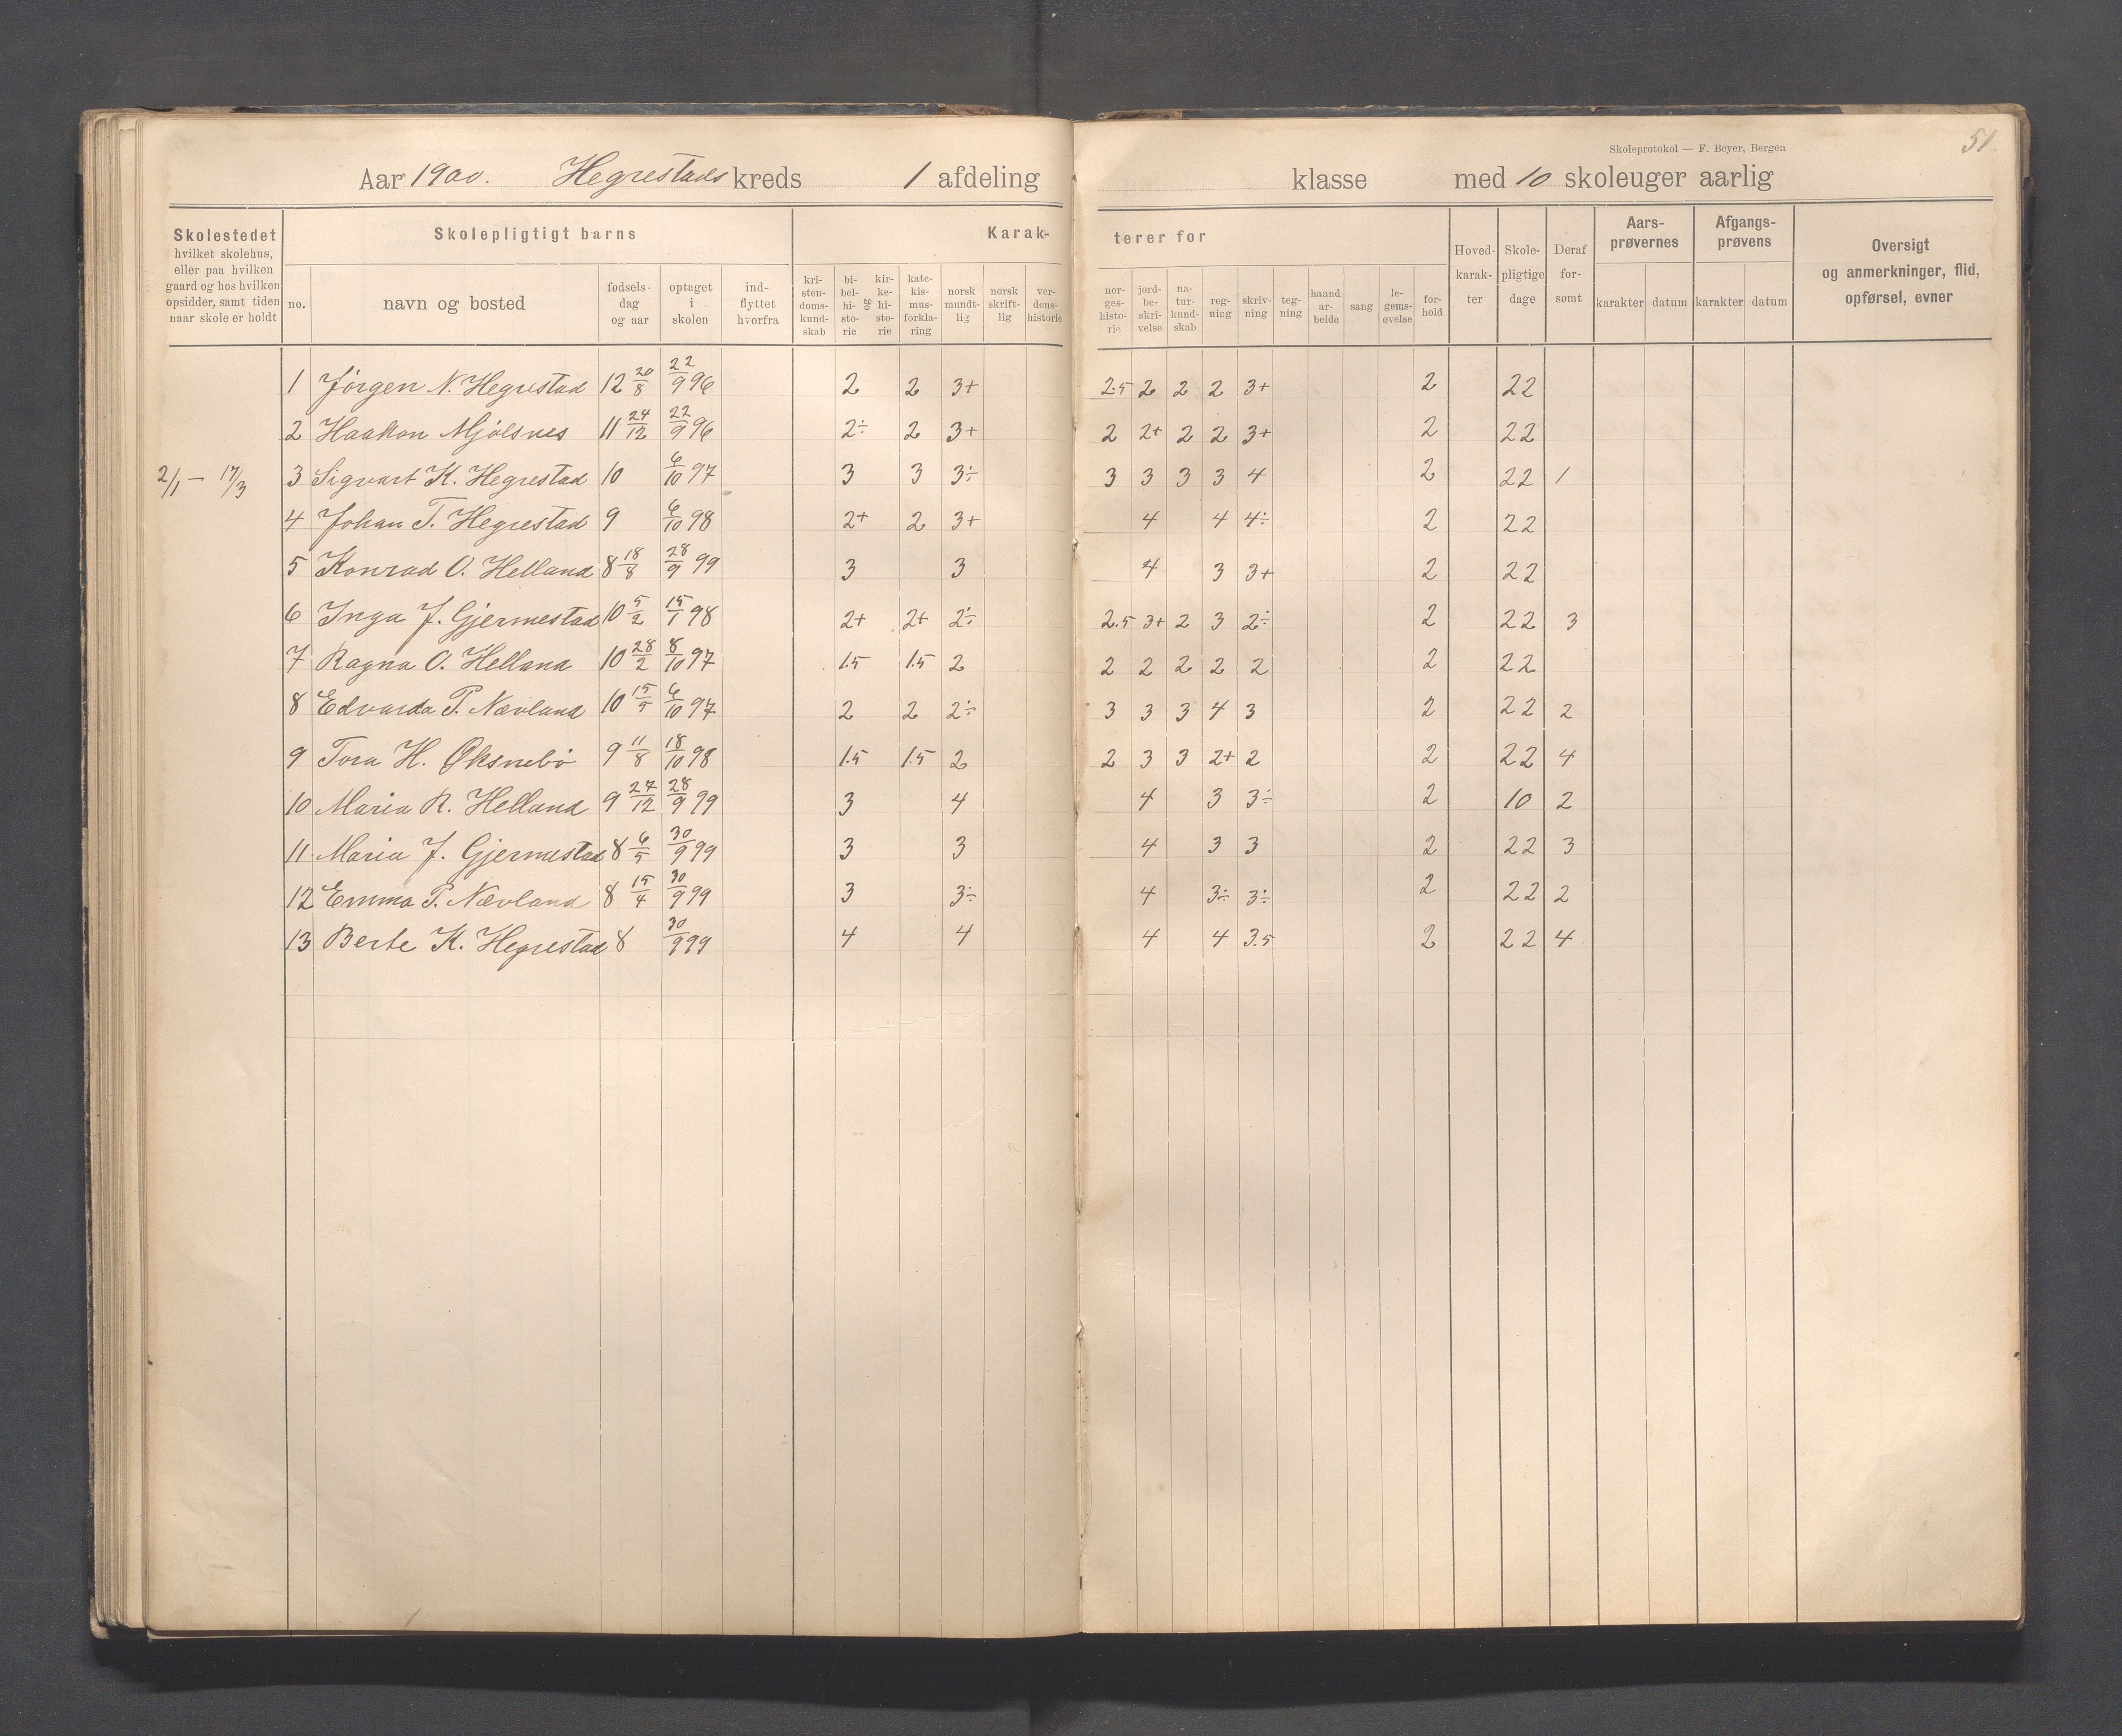 51.
Skoleprotokol — F. Beyer, Bergen
Aar 1900. Hegrestads kreds 1 afdeling klasse med 10 skoleuger aarlig
Skolestedet
hvilket skolehus,
eller paa hvilken
gaard og hos hvilken
opsidder, samt tiden
naar skole er holdt
Skolepligtigt barns
no.
navn og bosted
fødsels-
dag
og aar
optaget
i
skolen
ind-
flyttet
hvorfra
Karak-
terer for
kri-
sten-
doms-
kund-
skab
bi-
bel-
hi-
sto-
rie
og
kir-
ke-
hi-
sto-
rie
kate-
kis-
mus-
forkla-
ring
norsk
mundt-
lig
norsk
skrift-
lig
ver-
dens-
historie
nor-
ges-
histo-
rie
jord-
be-
skri-
velse
na-
tur-
kund-
skab
reg-
ning
skriv-
ning
teg-
ning
haand
ar-
beide
sang
le-
gems-
øvelse
for-
hold
Hoved-
karak-
ter
Skole-
pligtige
dage
Deraf
for-
sømt
Aars-
prøvernes
karakter datum
Afgangs-
prøvens
karakter datum
Oversigt
og anmerkninger, flid,
opførsel, evner
1 Jørgen N. Hegrestad 12 20/8 22/9 96 2 2 3+ 2.5 2 2 2 3+ 2 22
2 Haakon Mjølsnes 11 24/12 22/9 96 2÷ 2 3+ 2 2+ 2 2 3+ 2 22
2/1 — 17/3 3 Sigvart K. Hegrestad 10 6/10 97 3 3 3÷ 3 3 3 3 4 2 22 1
4 Johan T. Hegrestad 9 6/10 98 2+ 2 3+ 4 4 4÷ 2 22
5 Konrad O. Helland 8 18/8 28/9 99 3 3 4 3 3+ 2 22
6 Inga J. Gjermestad 10 5/2 15/1 98 2+ 2+ 2÷ 2.5 3+ 2 3 2÷ 2 22 3
7 Ragna O. Helland 10 28/2 8/10 97 1.5 1.5 2 2 2 2 2 2 2 22
8 Edvarda P. Nævland 10 15/5 6/10 97 2 2 2÷ 3 3 3 4 3 2 22 2
9 Tora H. Øksnebø 9 11/8 18/10 98 1.5 1.5 2 2 3 3 2+ 2 2 22 4
10 Maria R. Helland 9 27/12 28/9 99 3 4 4 3 3÷ 2 10 2
11. Maria J. Gjermestad 8 6/5 30/9 99 3 3 4 3 3 2 22 3
12 Emma P. Nævland 8 15/4 30/9 99 3 3÷ 4 3÷ 3÷ 2 22 2
13 Berte K. Hegrestad 8 30/9 99 4 4 4 4 3.5 2 22 4